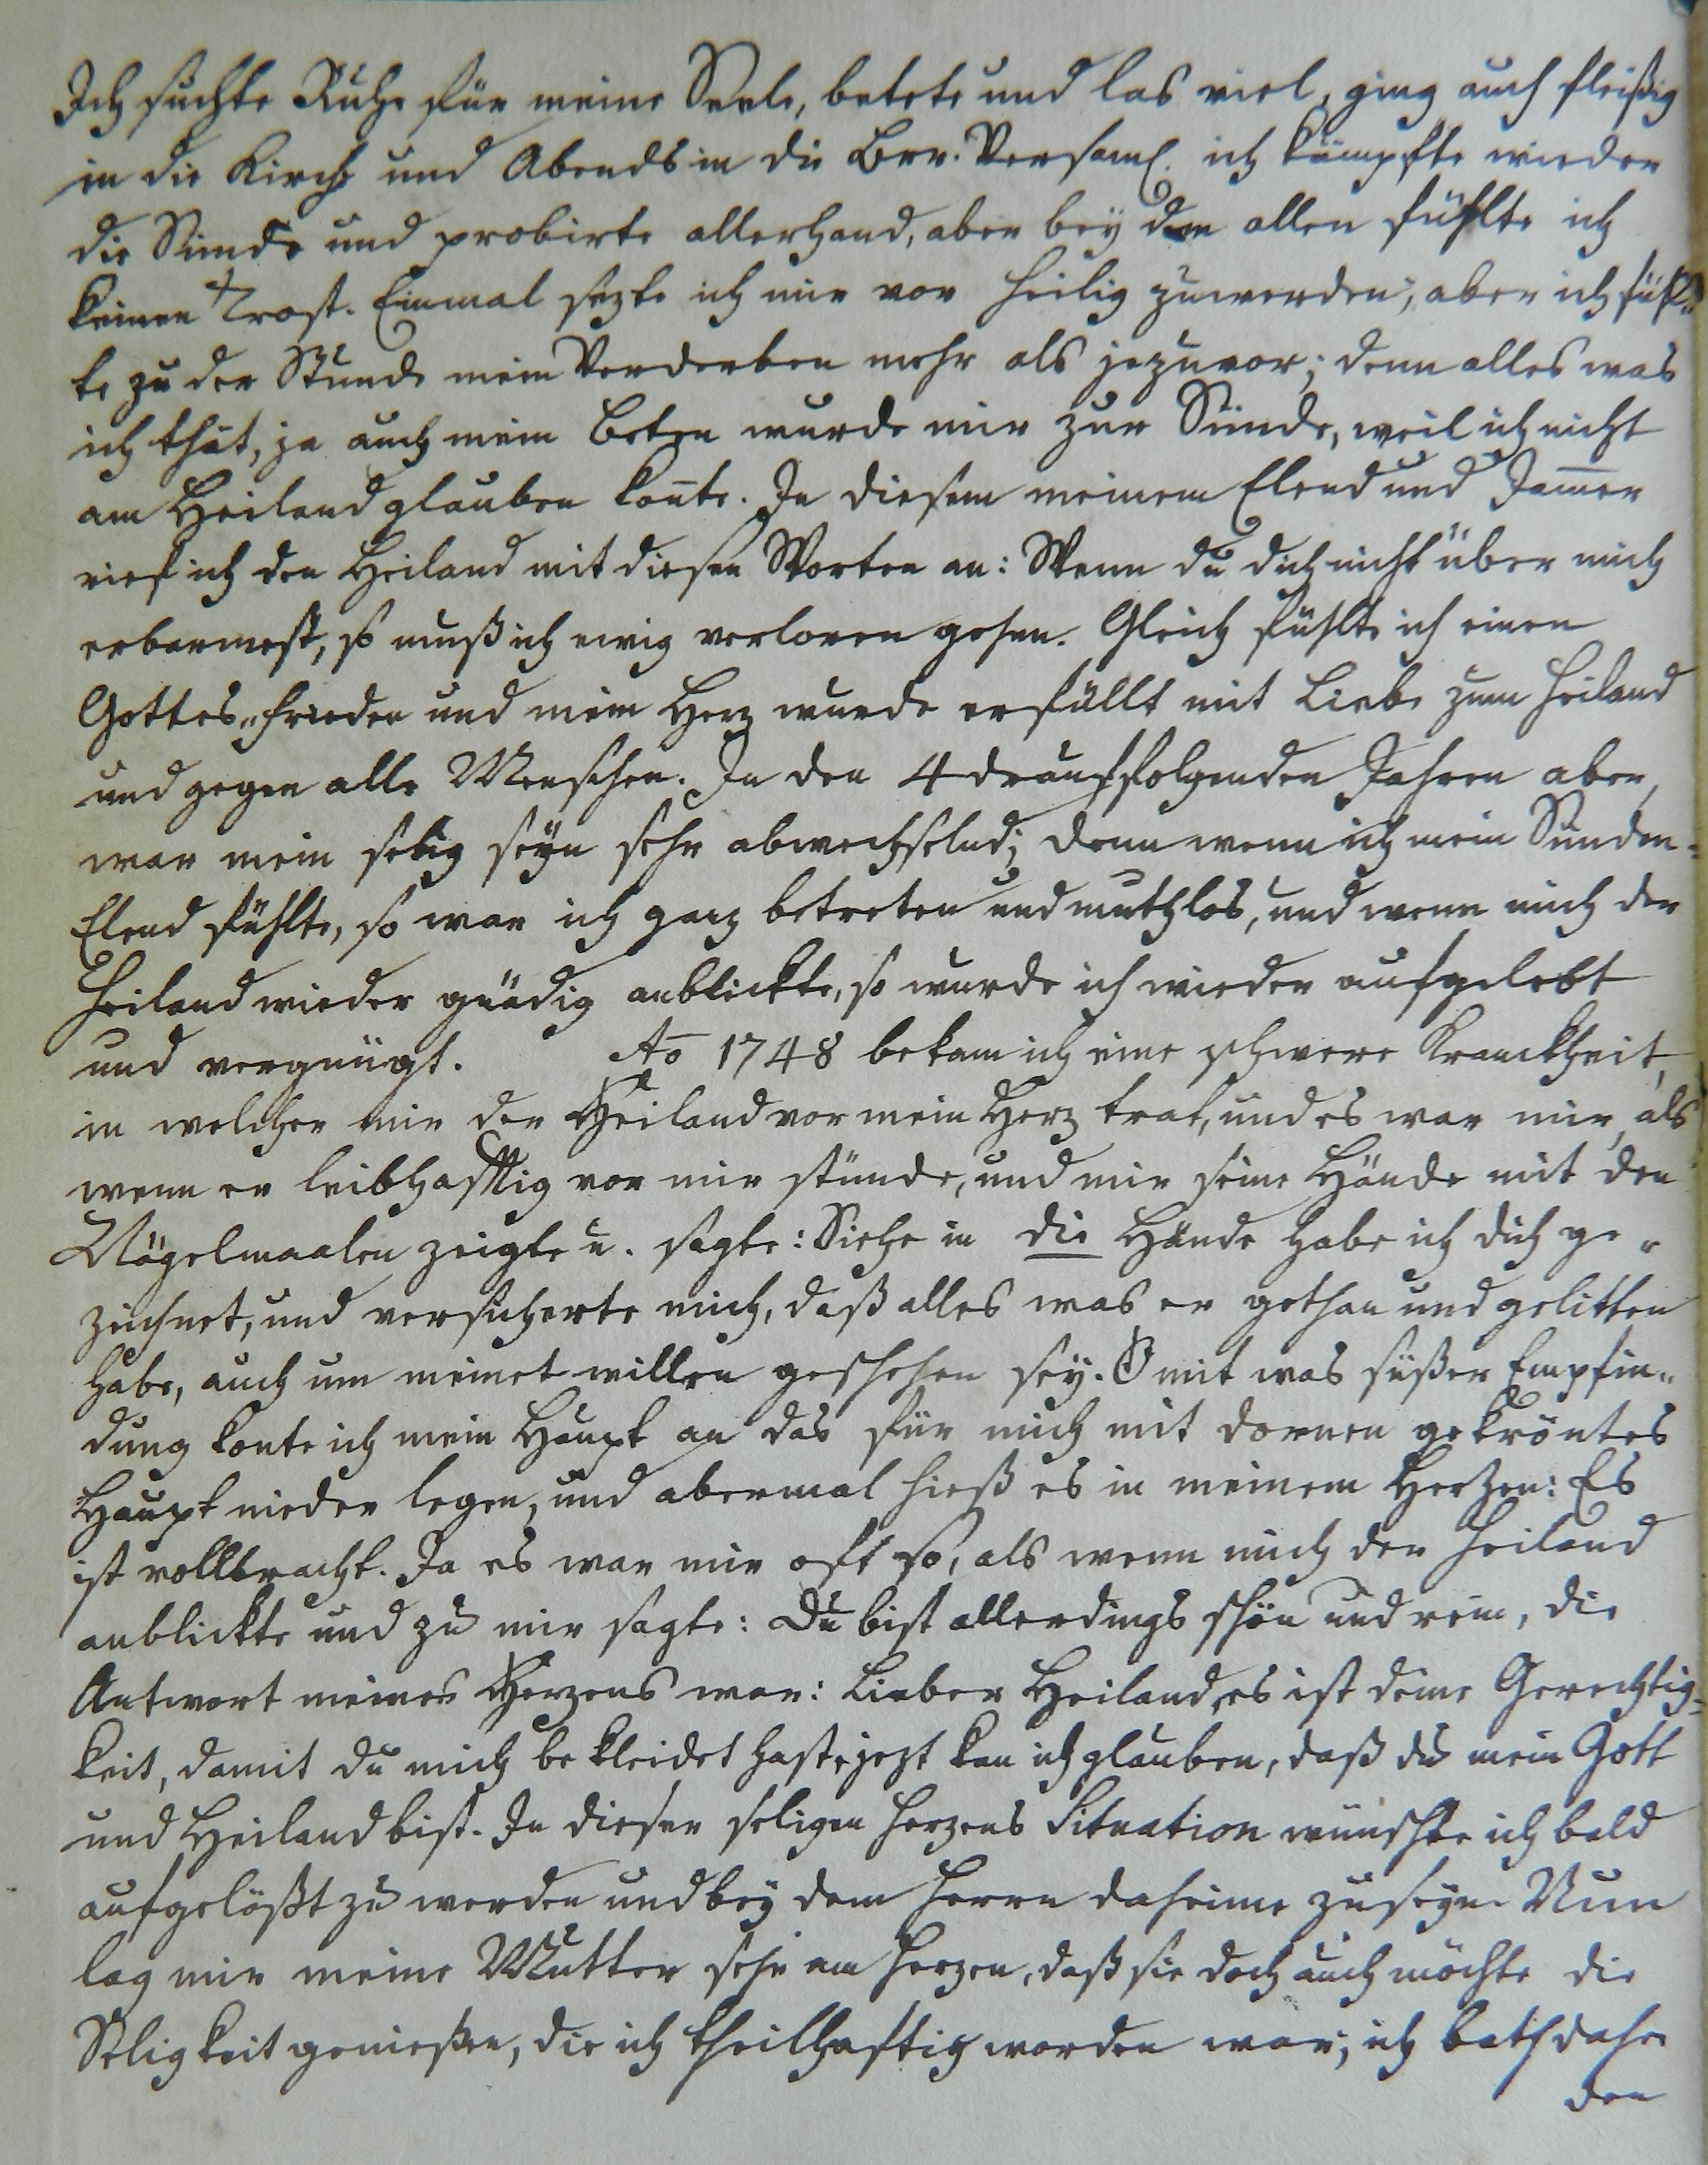 Ich suchte Ruhe für meine Seele, betete und las viel, ging auch fleißig
in die Kirche und Abends in die Brr. Versaml. ich kämpfte wieder
die Sünde und probirte allerhand, aber bey dem allen fühlte ich
keinen Trost. Einmal sezte ich mir vor heilig zu werden, aber ich fühl„
te zu der Stunde mein Verderben mehr als jezuvor; denn alles was
ich that, ja auch mein Beten wurde mir zur Sünde, weil ich nicht
am Heiland glauben kon̄te. In diesem meinem Elend und Jam̄er
rief ich den Heiland mit diesen Worten an: Wenn du dich nicht über mich
erbarmest, so muß ich ewig verloren gehen. Gleich fühlte ich einen
Gottes„Frieden und mein Herz wurde erfüllt mit Liebe zum Heiland
und gegen alle Menschen. In den 4 drauffolgenden Jahren aber,
war mein selig seyn sehr abwechselnd; denn wenn ich mein Sünden-
Elend fühlte, so war ich ganz betreten und muthlos, und wenn mich der
Heiland wieder gnädig anblickte, so wurde ich wieder aufgelebt
und vergnügt. Ao 1748 bekam ich eine schwere Kranckheit,
in welcher mir der Heiland vor mein Herz trat, und es war mir, als
wenn er leibhafftig vor mir stünde, und mir seine Hände mit den
Nägelmaalen zeigte u. sagte: Siehe in die Hände habe ich dich ge„
zeichnet, und versicherte mich, daß alles was er gethan und gelitten
habe, auch um meinet willen geschehen sey. O mit was süßer Empfin„
dung konte ich mein Haupt an das für mich mit dornen gekröntes
Haupt nieder legen, und abermal hieß es in meinem Herzen: Es
ist vollbracht. Ja es war mir oft so, als wenn mich der Heiland
anblickte und zu mir sagte: Du bist allerdings schön und rein, die
Antwort meines Herzens war: Lieber Heiland, es ist deine Gerechtig-
keit, damit du mich bekleidet hast, jezt kan ich glauben, daß du mein Gott
und Heiland bist. In dieser seligen Herzens Situation wünschte ich bald
aufgelößt zu werden und bey dem Herrn daheime zu seyn. Nun
lag mir meine Mutter sehr am Herzen, daß sie doch auch möchte die
Seligkeit genießen, die ich theilhaftig worden war; ich bath daher
den